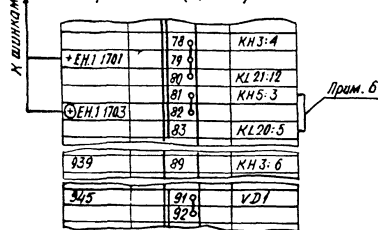 К шинкам
78 КН3:4
+ЕН.1 1701 79
80 KL21:12
81 КН5:3
⊕ЕН.1 1703 82
83 KL20:5
Прим. 6
939 89 КН3:6
945 91 VD1
92